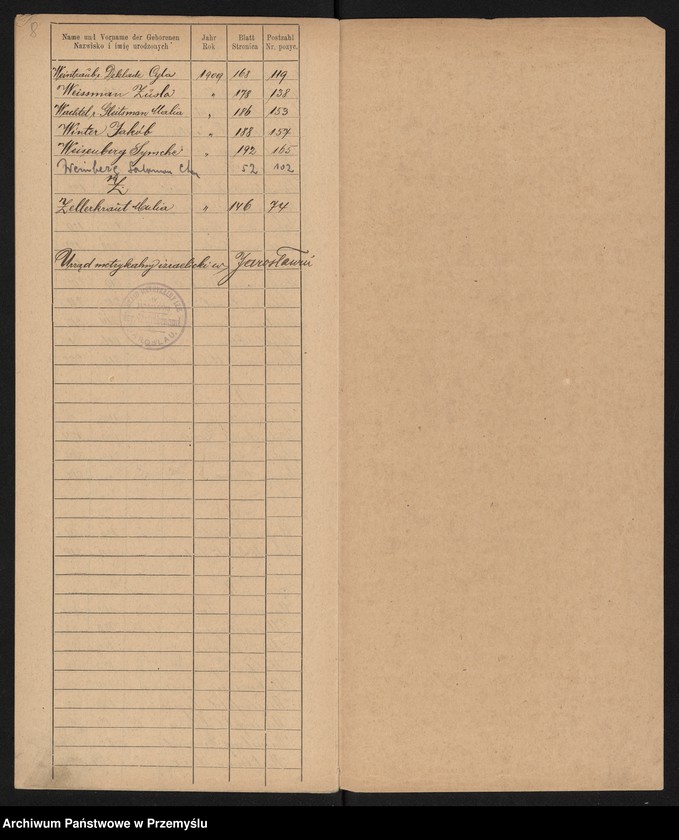 8
Name und Vorname der Geborenen Jahr Blatt Postzahl
Nazwisko i imię urodzonych Rok Stronica Nr. pozyc.
Weintraub r. Cyla 1909 168 119
Weissman Züsla " 178 138
Wachtel r. Gleitsman Malia " 186 153
Winter Jakób " 188 157
Weisenberg Symche " 192 165
Weinberg Salomon 52 102
Z
Zellerkraut Malia " 146 74
Urząd metrykalny izraelicki w Jarosławiu
Archiwum Państwowe w Przemyślu